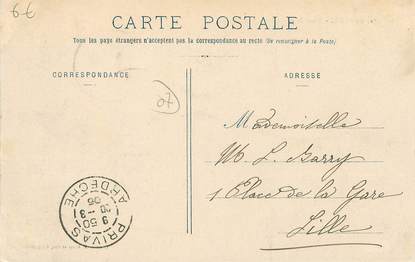 6€
CARTE POSTALE
Tous les pays étrangers n'acceptent pas la correspondance au recto (Se renseigner à la Poste)
CORRESPONDANCE
ADRESSE
07
Mademoiselle
M. L. Barry
1 Place de la Gare
Lille
PRIVAS
9 50
30 - 3
05
ARDECHE